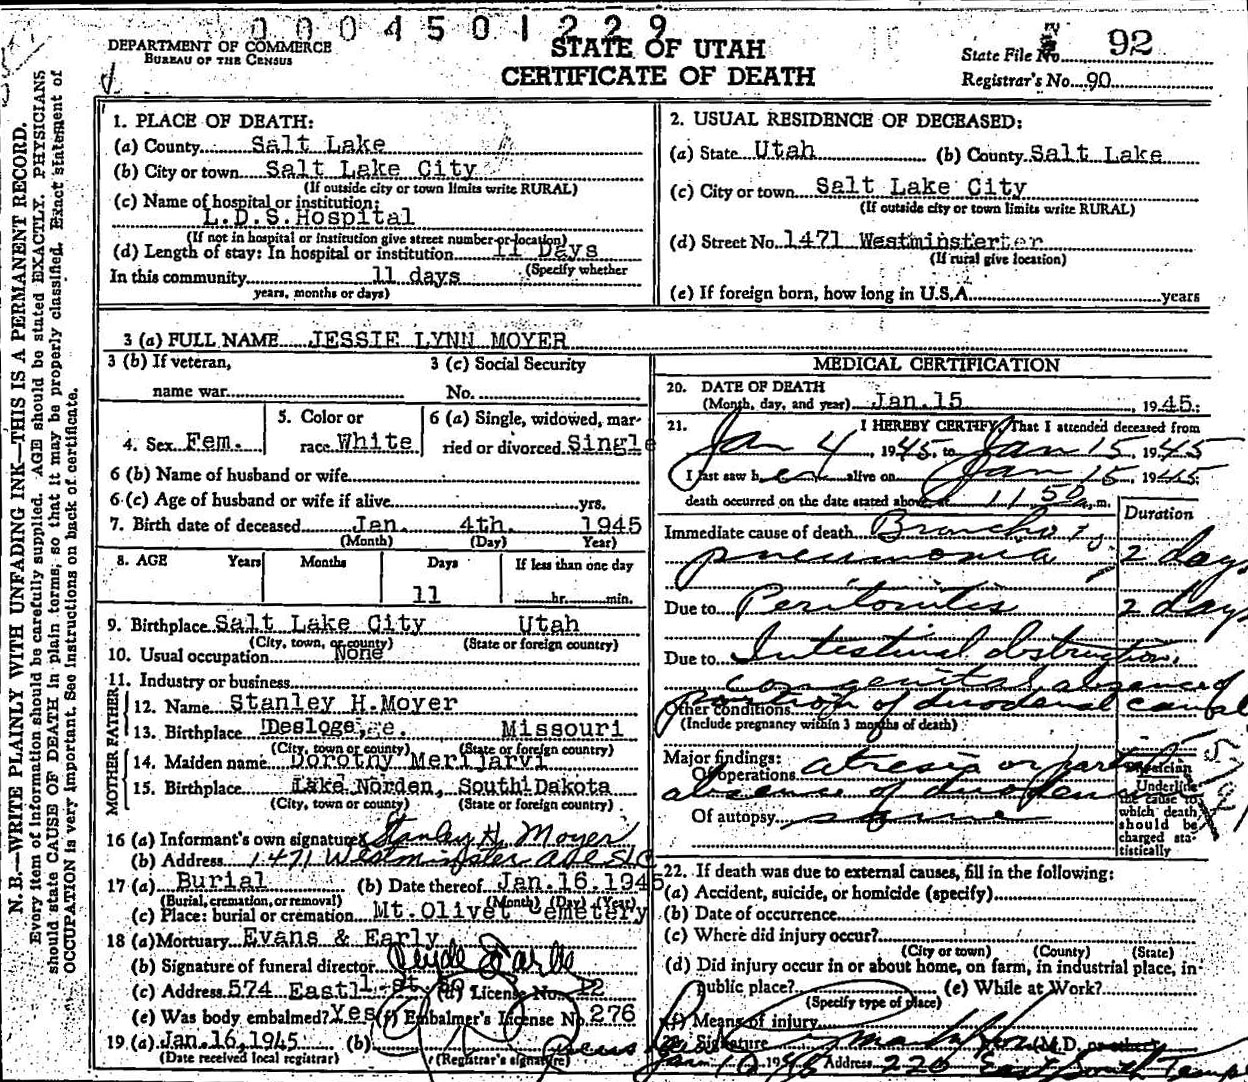 0004501229
DEPARTMENT OF COMMERCE
BUREAU OF THE CENSUS
STATE OF UTAH
CERTIFICATE OF DEATH
State File No. 92
Registrar's No. 90
N. B.—WRITE PLAINLY WITH UNFADING INK—THIS IS A PERMANENT RECORD.
Every item of information should be carefully supplied. AGE should be stated EXACTLY. PHYSICIANS
should state CAUSE OF DEATH in plain terms, so that it may be properly classified. Exact statement of
OCCUPATION is very important. See instructions on back of certificate.
1. PLACE OF DEATH:
(a) County Salt Lake
(b) City or town Salt Lake City
(If outside city or town limits write RURAL)
(c) Name of hospital or institution:
L.D.S.Hospital
(If not in hospital or institution give street number or location)
(d) Length of stay: In hospital or institution 11 Days
(Specify whether
In this community 11 days
years, months or days)
2. USUAL RESIDENCE OF DECEASED:
(a) State Utah (b) County Salt Lake
(c) City or town Salt Lake City
(If outside city or town limits write RURAL)
(d) Street No. 1471 Westminsterter
(If rural give location)
(e) If foreign born, how long in U.S.A. years
3 (a) FULL NAME JESSIE LYNN MOYER
3 (b) If veteran, 3 (c) Social Security
name war No.
4. Sex Fem. 5. Color or race White 6 (a) Single, widowed, married or divorced Single
6 (b) Name of husband or wife
6 (c) Age of husband or wife if alive yrs.
7. Birth date of deceased Jan. 4th. 1945
(Month) (Day) Year)
8. AGE Years Months Days If less than one day
11 hr. min.
9. Birthplace Salt Lake City Utah
(City, town, or county) (State or foreign country)
10. Usual occupation None
11. Industry or business
FATHER
12. Name Stanley H.Moyer
13. Birthplace Desloge, Missouri
(City, town or county) (State or foreign country)
MOTHER
14. Maiden name Dorothy Merijarvi
15. Birthplace Lake Norden, South Dakota
(City, town or county) (State or foreign country)
16 (a) Informant's own signature Stanley H. Moyer
(b) Address 1471 Westminster Ave SLC
17 (a) Burial (b) Date thereof Jan.16.1945
(Burial, cremation, or removal) (Month) (Day) (Year)
(c) Place: burial or cremation Mt.Olivet Cemetery
18 (a) Mortuary Evans & Early
(b) Signature of funeral director
(c) Address 574 East 1 st. So (d) License No. 22
(e) Was body embalmed? Yes (f) Embalmer's License No. 276
19 (a) Jan.16,1945 (b)
(Date received local registrar) (Registrar's signature)
MEDICAL CERTIFICATION
20. DATE OF DEATH
(Month, day, and year) Jan.15 , 1945.
21. I HEREBY CERTIFY, That I attended deceased from
Jan 4 , 1945, to Jan 15, 1945
I last saw her alive on Jan 15, 1945;
death occurred on the date stated above at 11 50 a.m.
Duration
Immediate cause of death Broncho
pneumonia 2 days
Due to Peritonitis 2 days
Due to Intestinal obstruction,
congenital absence of
Other conditions portion of duodenal canal
(Include pregnancy within 3 months of death)
Major findings:
Of operations atresia or partial
absence of duodenum
Of autopsy same
Physician
Underline
the cause to
which death
should be
charged sta-
tistically
22. If death was due to external causes, fill in the following:
(a) Accident, suicide, or homicide (specify)
(b) Date of occurrence
(c) Where did injury occur?
(City or town) (County) (State)
(d) Did injury occur in or about home, on farm, in industrial place, in
public place? (e) While at Work?
(Specify type of place)
(f) Means of injury
23. Signature (M.D. or other)
Address 220 East South Temple